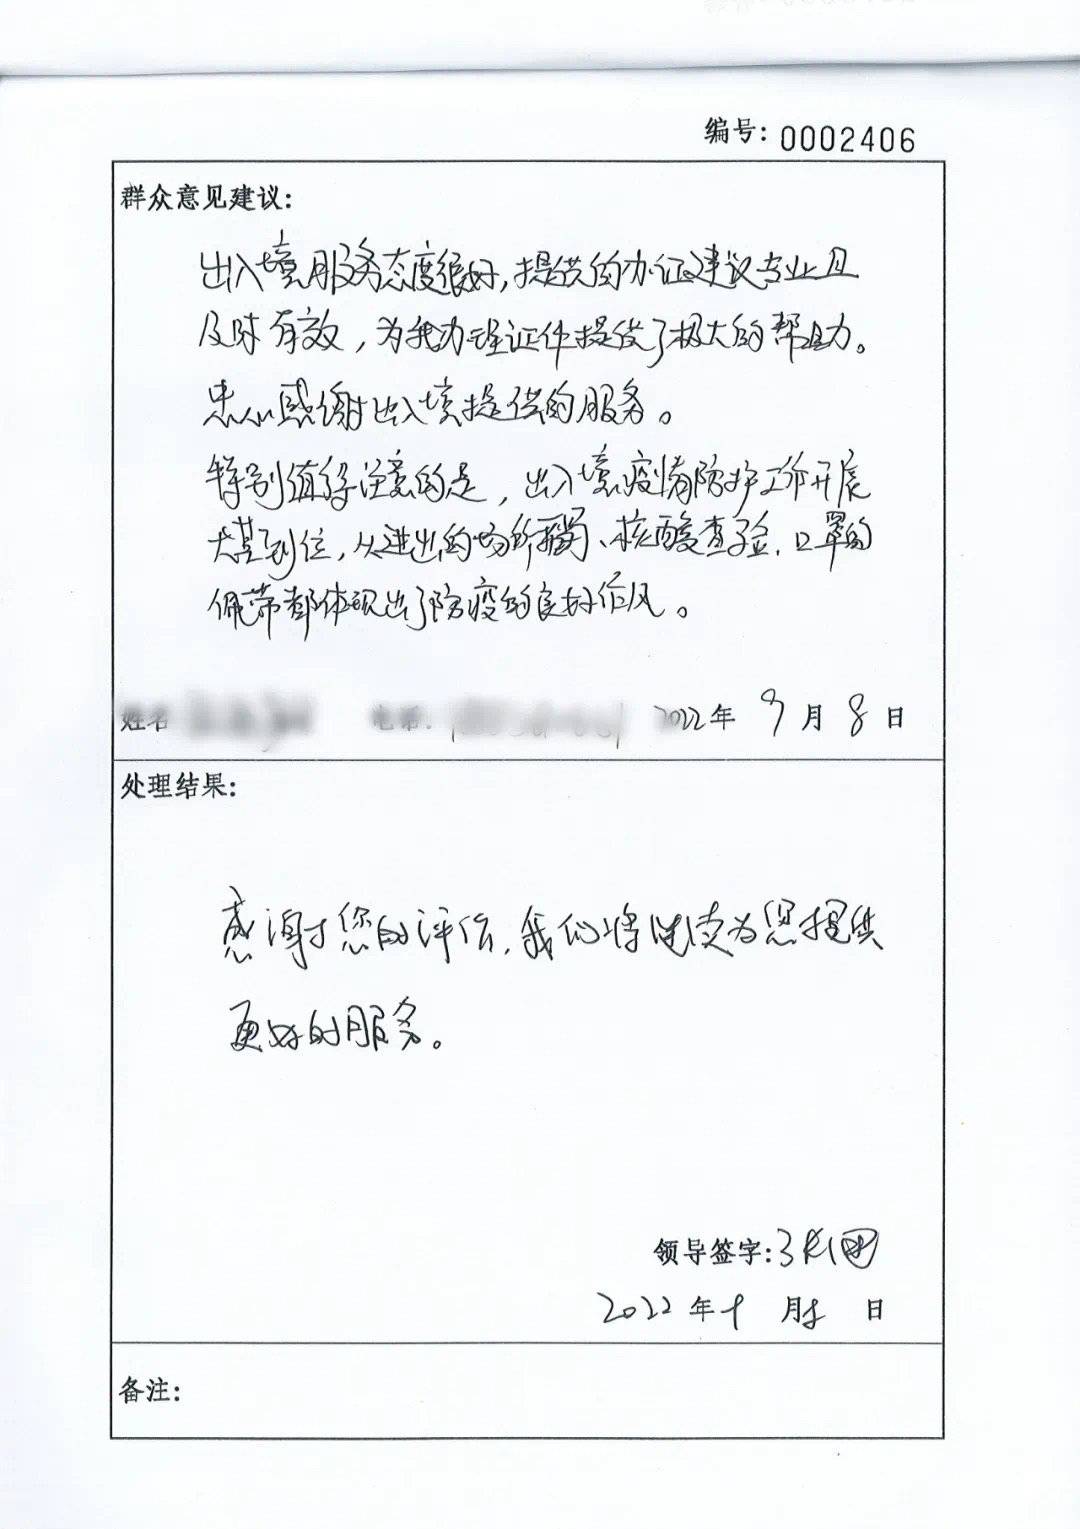 编号：0002406
群众意见建议：
出入境服务态度很好，提供的办证建议专业且
及时有效，为我办理证件提供了极大的帮助。
忠心感谢出入境提供的服务。
特别值得注意的是，出入境疫情防护工作开展
尤其到位，从进出的场所码、核酸查验、口罩的
佩带都体现出了防疫的良好作风。
姓名 电话： 2022年 9月 8日
处理结果：
感谢您的评价，我们将继续为您提供
更好的服务。
领导签字：
2022年 月 日
备注：